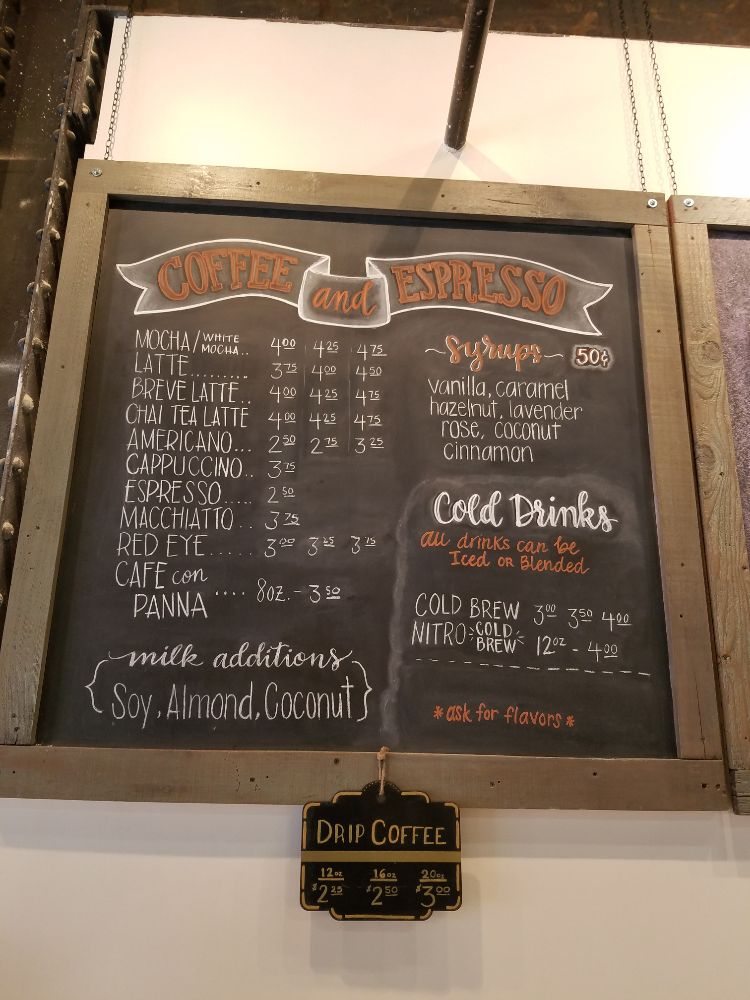 COFFEE and ESPRESSO
MOCHA/WHITE MOCHA.. 4.00 4.25 4.75
LATTE......... 3.75 4.00 4.50
BREVE LATTE.. 4.00 4.25 4.75
CHAI TEA LATTE 4.00 4.25 4.75
AMERICANO... 2.50 2.75 3.25
CAPPUCCINO.. 3.75
ESPRESSO..... 2.50
MACCHIATTO.. 3.75
RED EYE...... 3.00 3.25 3.75
CAFE con
PANNA .... 8oz. - 3.50
milk additions
{Soy, Almond, Coconut}
~Syrups~ 50¢
vanilla, caramel
hazelnut, lavender
rose, coconut
cinnamon
Cold Drinks
all drinks can be
Iced OR Blended
COLD BREW 3.00 3.50 4.00
NITRO COLD BREW 12oz - 4.00
*ask for flavors*
DRIP COFFEE
12oz 16oz 20oz
$2.25 $2.50 $3.00